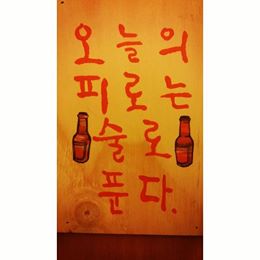 오늘의
피로는
술로
푼다.